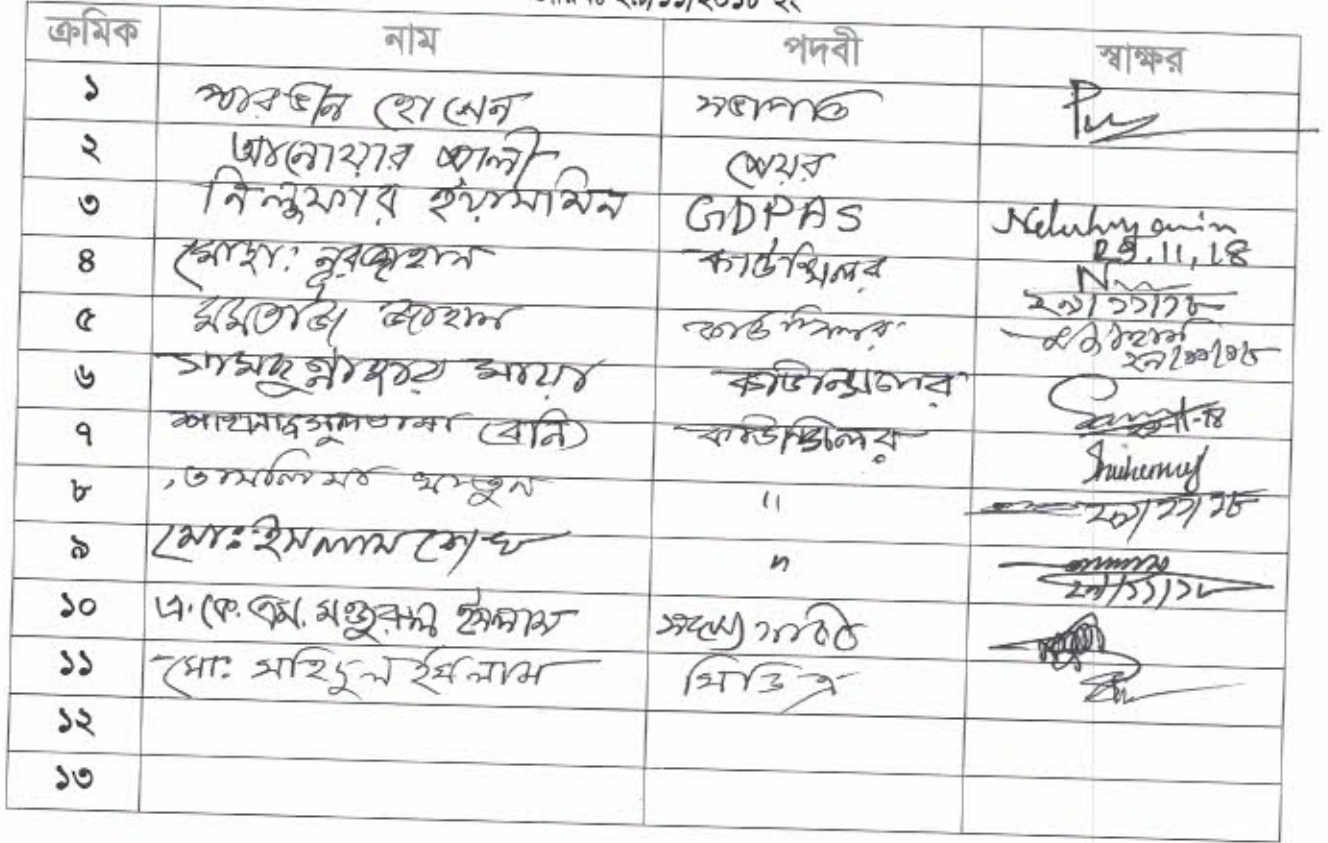 ক্রমিক নাম পদবী স্বাক্ষর
১ পারভীন হোসেন সভাপতি
২ আনোয়ার আলী মেয়র
৩ নিলুফার ইয়াসমিন GDPAS
29.11.18
৪ মোছা: নূরজাহান কাউন্সিলর
২৯/১১/১৮
৫ মমতাজ জাহান কাউন্সিলর
২৯/১১/১৮
৬ সামছুন্নাহার মায়া কাউন্সিলর
৭ শাহনাজ সুলতানা (বনি) কাউন্সিলর
৮ তাসলিমা খাতুন "
২৯/১১/১৮
৯ মোঃ ইসলাম শেখ "
২৯/১১/১৮
১০ এ.কে.এম. মঞ্জুরুল ইসলাম সদস্য সচিব
১১ মো: সহিদুল ইসলাম সিডিএ
১২
১৩